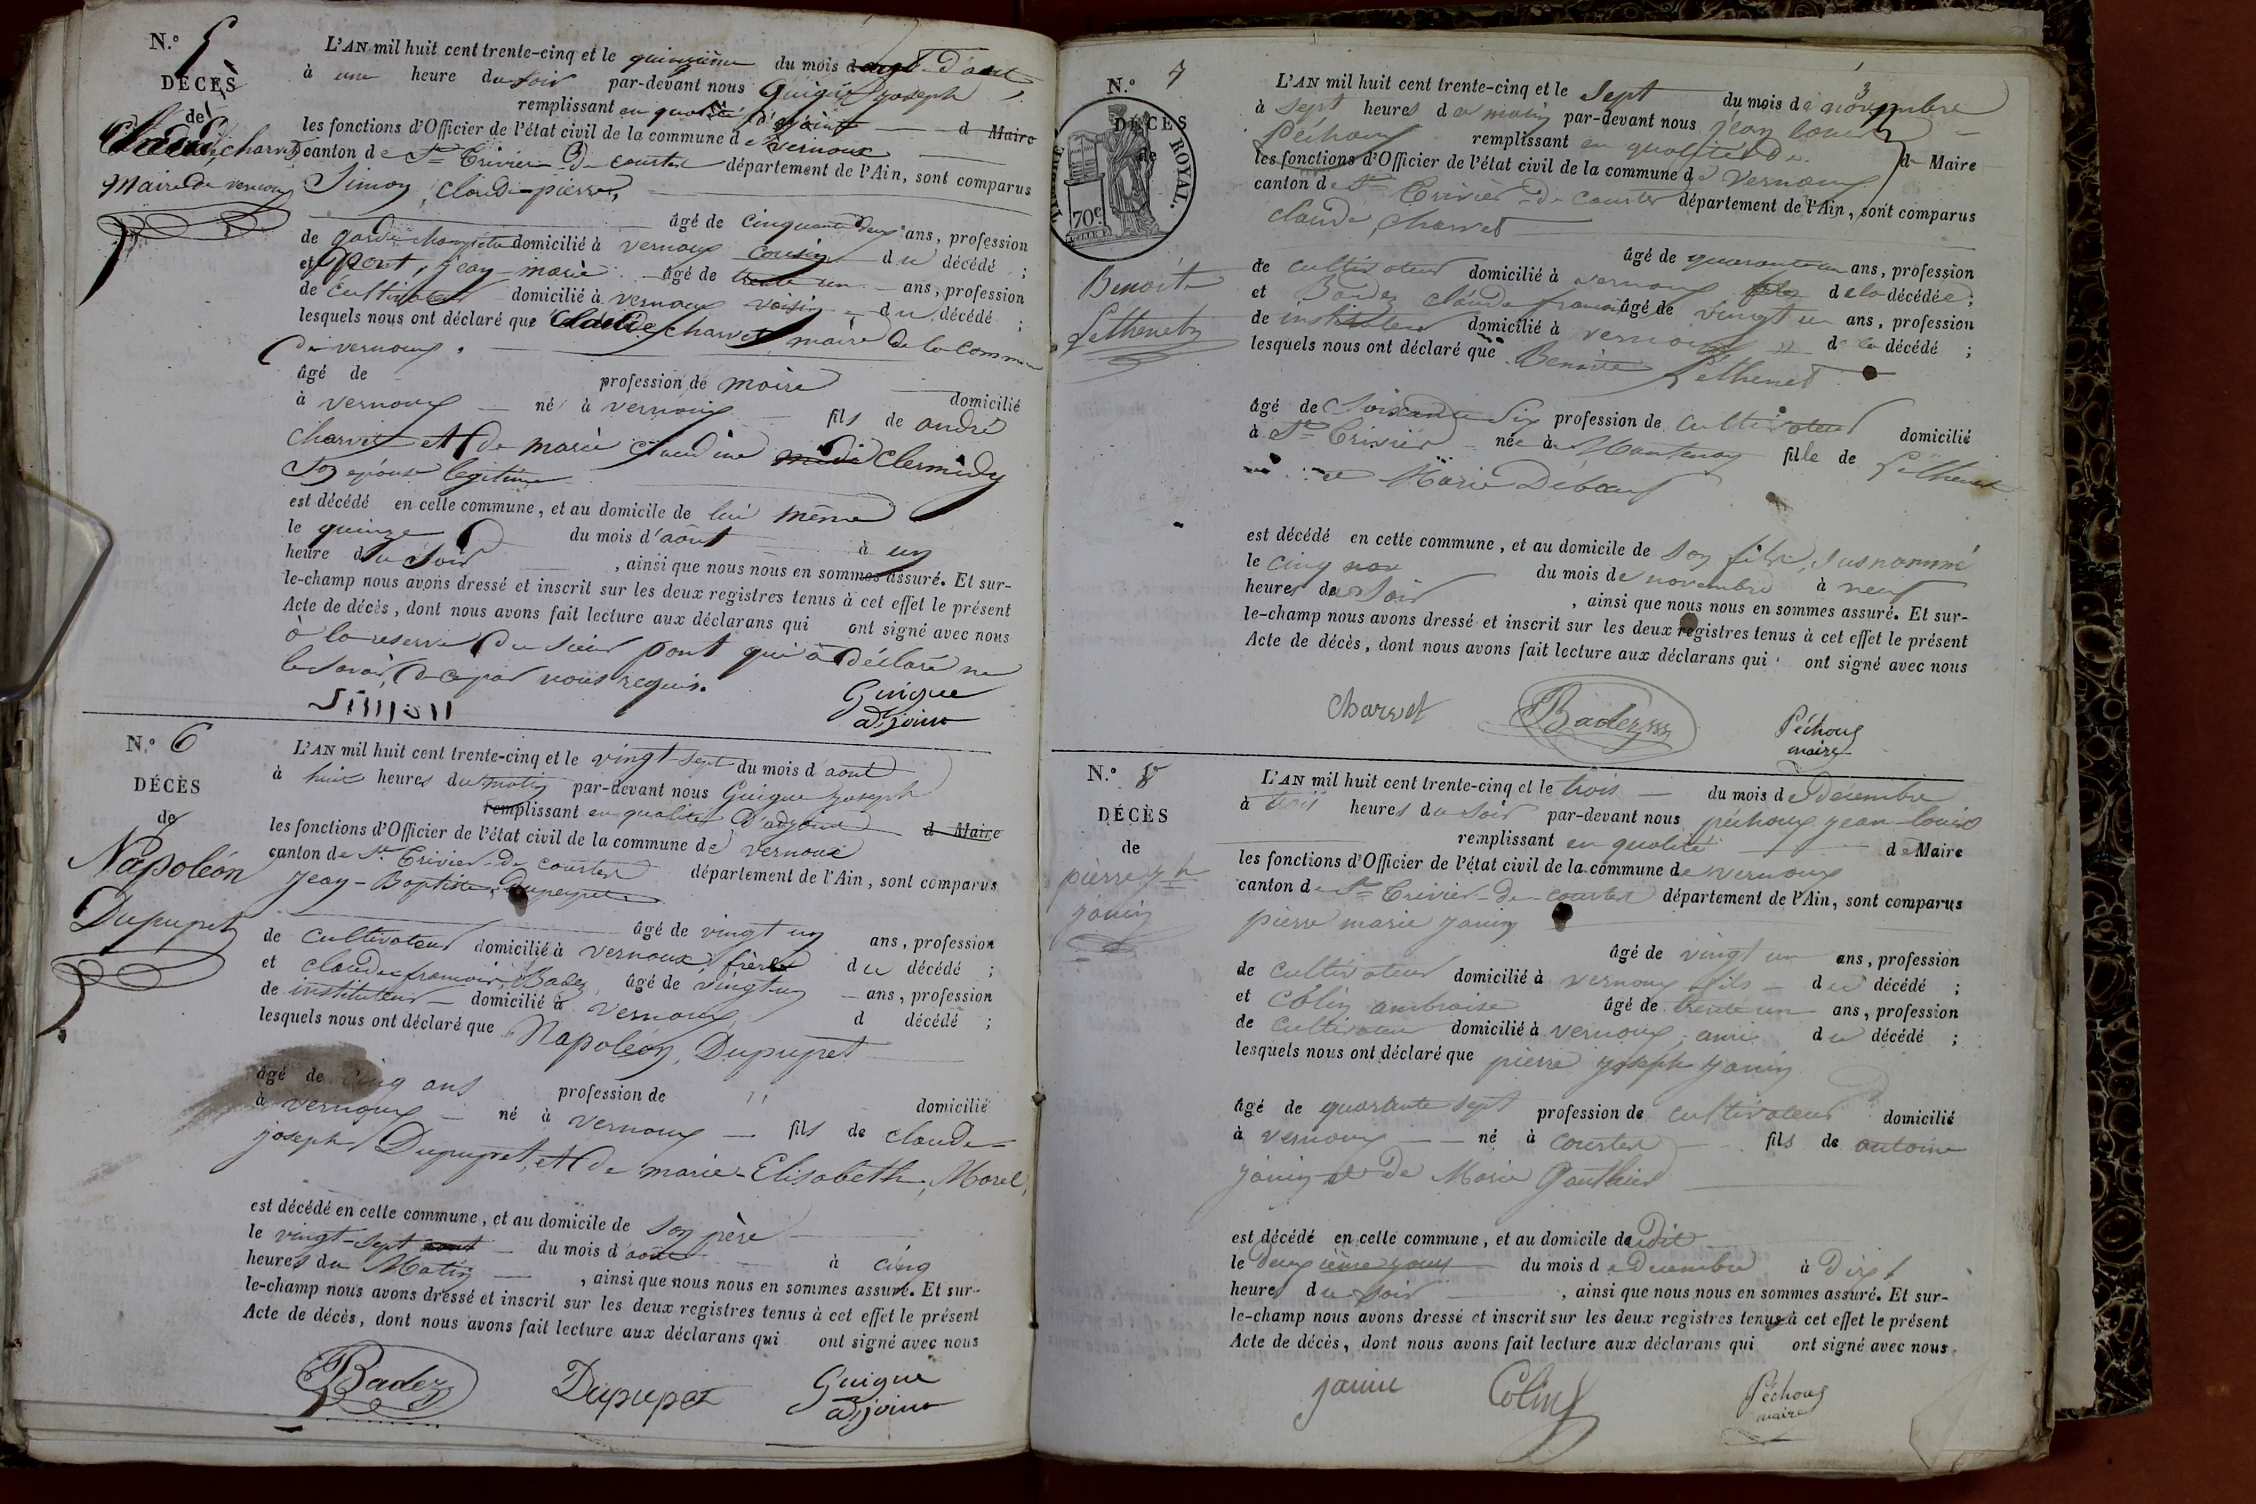 N.º 5
DÉCÈS
de
Claude charvet
Maire de vernoux
L'AN mil huit cent trente-cinq et le quinzième du mois d'aout
à une heure du soir par-devant nous Guigue joseph
remplissant en qualité d'adjoint d Maire
les fonctions d'Officier de l'état civil de la commune de vernoux
canton de St Trivier De courtes département de l'Ain, sont comparus
Simon, Claude-pierre,
âgé de cinquante deux ans, profession
de garde champêtre domicilié à vernoux cousin du décédé ;
et pont, jean-marie âgé de trente un ans, profession
de cultivateur domicilié à vernoux voisin du décédé ;
lesquels nous ont déclaré que Claude charvet, maire de la commune
De vernoux.
âgé de profession de maire domicilié
à vernoux né à vernoux fils de andré
charvet et de marie claudine Clermidy
son epouse legitime
est décédé en cette commune, et au domicile de lui même
le quinze du mois d'août à un
heure du soir , ainsi que nous nous en sommes assuré. Et sur-
le-champ nous avons dressé et inscrit sur les deux registres tenus à cet effet le présent
Acte de décès, dont nous avons fait lecture aux déclarans qui ont signé avec nous
à la reserve du sieur pont qui a déclaré ne
le savoir, de ce par nous requis.
Simon
Guigue
adjoint
N.º 6
DÉCÈS
de
Napoléon
Dupupet
L'AN mil huit cent trente-cinq et le vingt-sept du mois d aout
à huit heures du matin par-devant nous Guigue joseph
remplissant en qualité d'adjoint d Maire
les fonctions d'Officier de l'état civil de la commune de vernoux
canton de St Trivier-De courtes département de l'Ain, sont comparus
Jean-Baptiste, Dupupet
âgé de vingt un ans, profession
de cultivateur domicilié à vernoux, frère du décédé ;
et claude francois, Badez, âgé de vingt un ans, profession
de instituteur domicilié à vernoux d décédé ;
lesquels nous ont déclaré que Napoléon, Dupupet
âgé de cinq ans profession de " domicilié
à vernoux né à vernoux fils de claude-
joseph Dupupet, et de marie-Elisabeth, Morel,
est décédé en cette commune, et au domicile de son père
le vingt-sept aout du mois d'aout à cinq
heures du Matin , ainsi que nous nous en sommes assuré. Et sur-
le-champ nous avons dressé et inscrit sur les deux registres tenus à cet effet le présent
Acte de décès, dont nous avons fait lecture aux déclarans qui ont signé avec nous
Badez Dupupet Guigue
adjoint
N.º 7
DÉCÈS
de
TIMBRE ROYAL.
70c
Benoite
Lethenet
L'AN mil huit cent trente-cinq et le sept du mois de novembre
à sept heures du matin par-devant nous jean louis
Péchoux remplissant en qualité de d Maire
les fonctions d'Officier de l'état civil de la commune de vernoux
canton de St Trivier-De courtes département de l'Ain, sont comparus
claude, charvet
âgé de quarante un ans, profession
de cultivateur domicilié à vernoux fils de la décédée ;
et Badez claude francois âgé de vingt un ans, profession
de instituteur domicilié à vernoux " de la décédé ;
lesquels nous ont déclaré que Benoite Lethenet
âgé de soixante six profession de cultivateur domicilié
à St Trivier née à Mantenay fille de Lethenet
et Marie Débœuf
est décédé en cette commune, et au domicile de son fils, susnommé
le cinq nov du mois de novembre à neuf
heures du soir , ainsi que nous nous en sommes assuré. Et sur-
le-champ nous avons dressé et inscrit sur les deux registres tenus à cet effet le présent
Acte de décès, dont nous avons fait lecture aux déclarans qui ont signé avec nous
Charvet Badez Péchoux
maire
N.º 8
DÉCÈS
de
pierre jh
janin
L'AN mil huit cent trente-cinq et le trois du mois de Décembre
à trois heures du soir par-devant nous péchoux jean-louis
remplissant en qualité de Maire
les fonctions d'Officier de l'état civil de la commune de vernoux
canton de St Trivier-De-courtes département de l'Ain, sont comparus
pierre marie janin
âgé de vingt un ans, profession
de cultivateur domicilié à vernoux fils du décédé ;
et Colin ambroise âgé de trente un ans, profession
de cultivateur domicilié à vernoux, ami du décédé ;
lesquels nous ont déclaré que pierre joseph janin
âgé de quarante sept profession de cultivateur domicilié
à vernoux né à courtes fils de antoine
janin et de Marie Gauthier
est décédé en cette commune, et au domicile dudit
le deuxième jour du mois de Decembre à dix
heures du soir , ainsi que nous nous en sommes assuré. Et sur-
le-champ nous avons dressé et inscrit sur les deux registres tenus à cet effet le présent
Acte de décès, dont nous avons fait lecture aux déclarans qui ont signé avec nous.
janin Colin Péchoux
maire